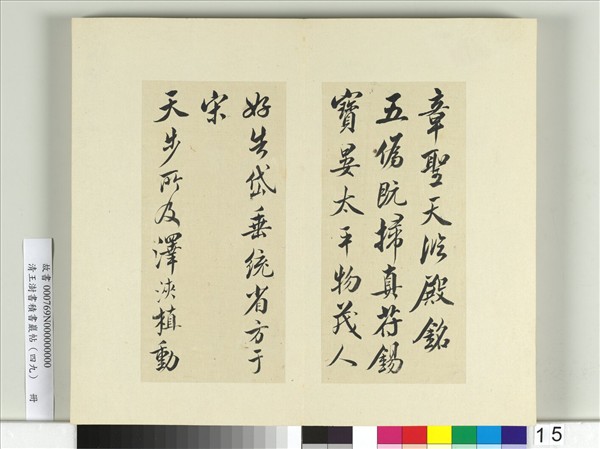 章聖天臨殿銘
五僞既掃真苻錫
寶晏太平物茂人
好告岱垂統省方于
宋
天步所及澤浹植動
故書 000769N000000000
清王澍書積書巖帖（四九） 冊
15